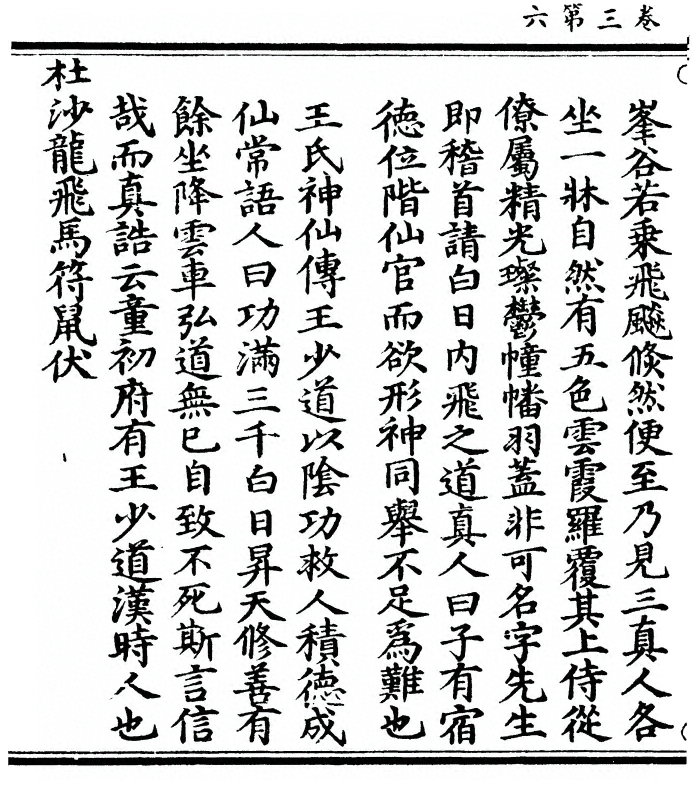 卷三第六
峯谷若乗飛飈倏然便至乃見三真人各
坐一牀自然有五色雲霞羅覆其上侍從
僚屬精光璨鬱幢幡羽蓋非可名字先生
即稽首請白日內飛之道真人曰子有宿
德位階仙官而欲形神同舉不足爲難也
王氏神仙傳王少道以陰功救人積德成
仙常語人曰功滿三千白日昇天修善有
餘坐降雲車弘道無已自致不死斯言信
哉而真誥云童初府有王少道漢時人也
杜沙龍飛馬符鼠伏